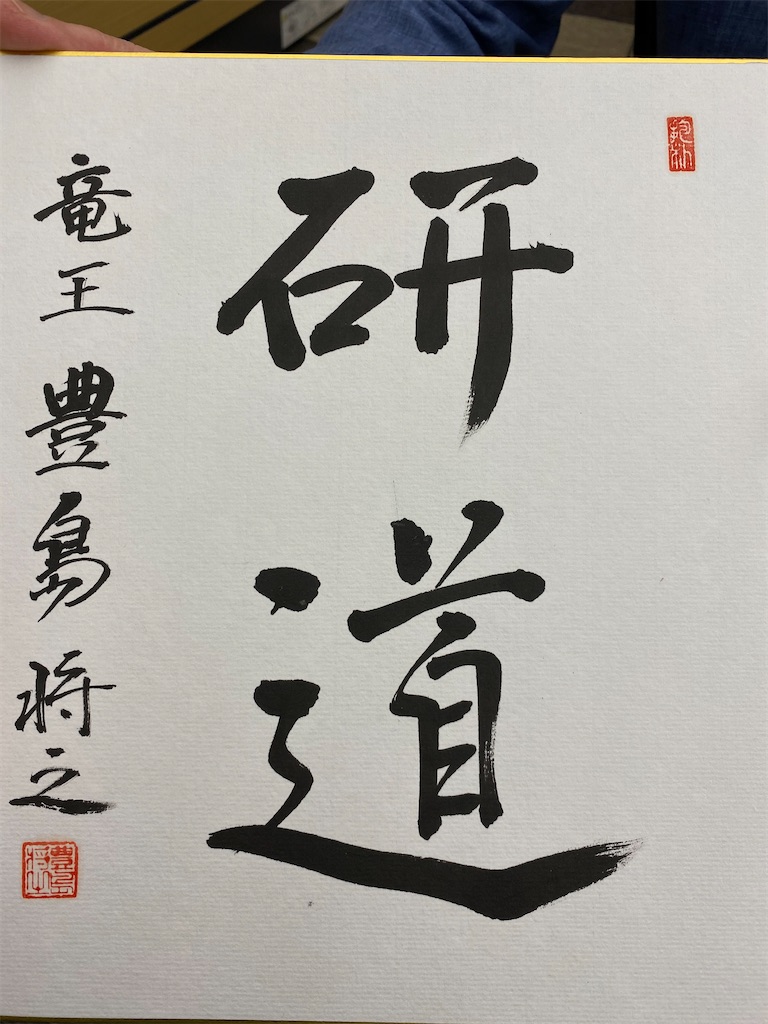 研道
竜王 豊島 将之